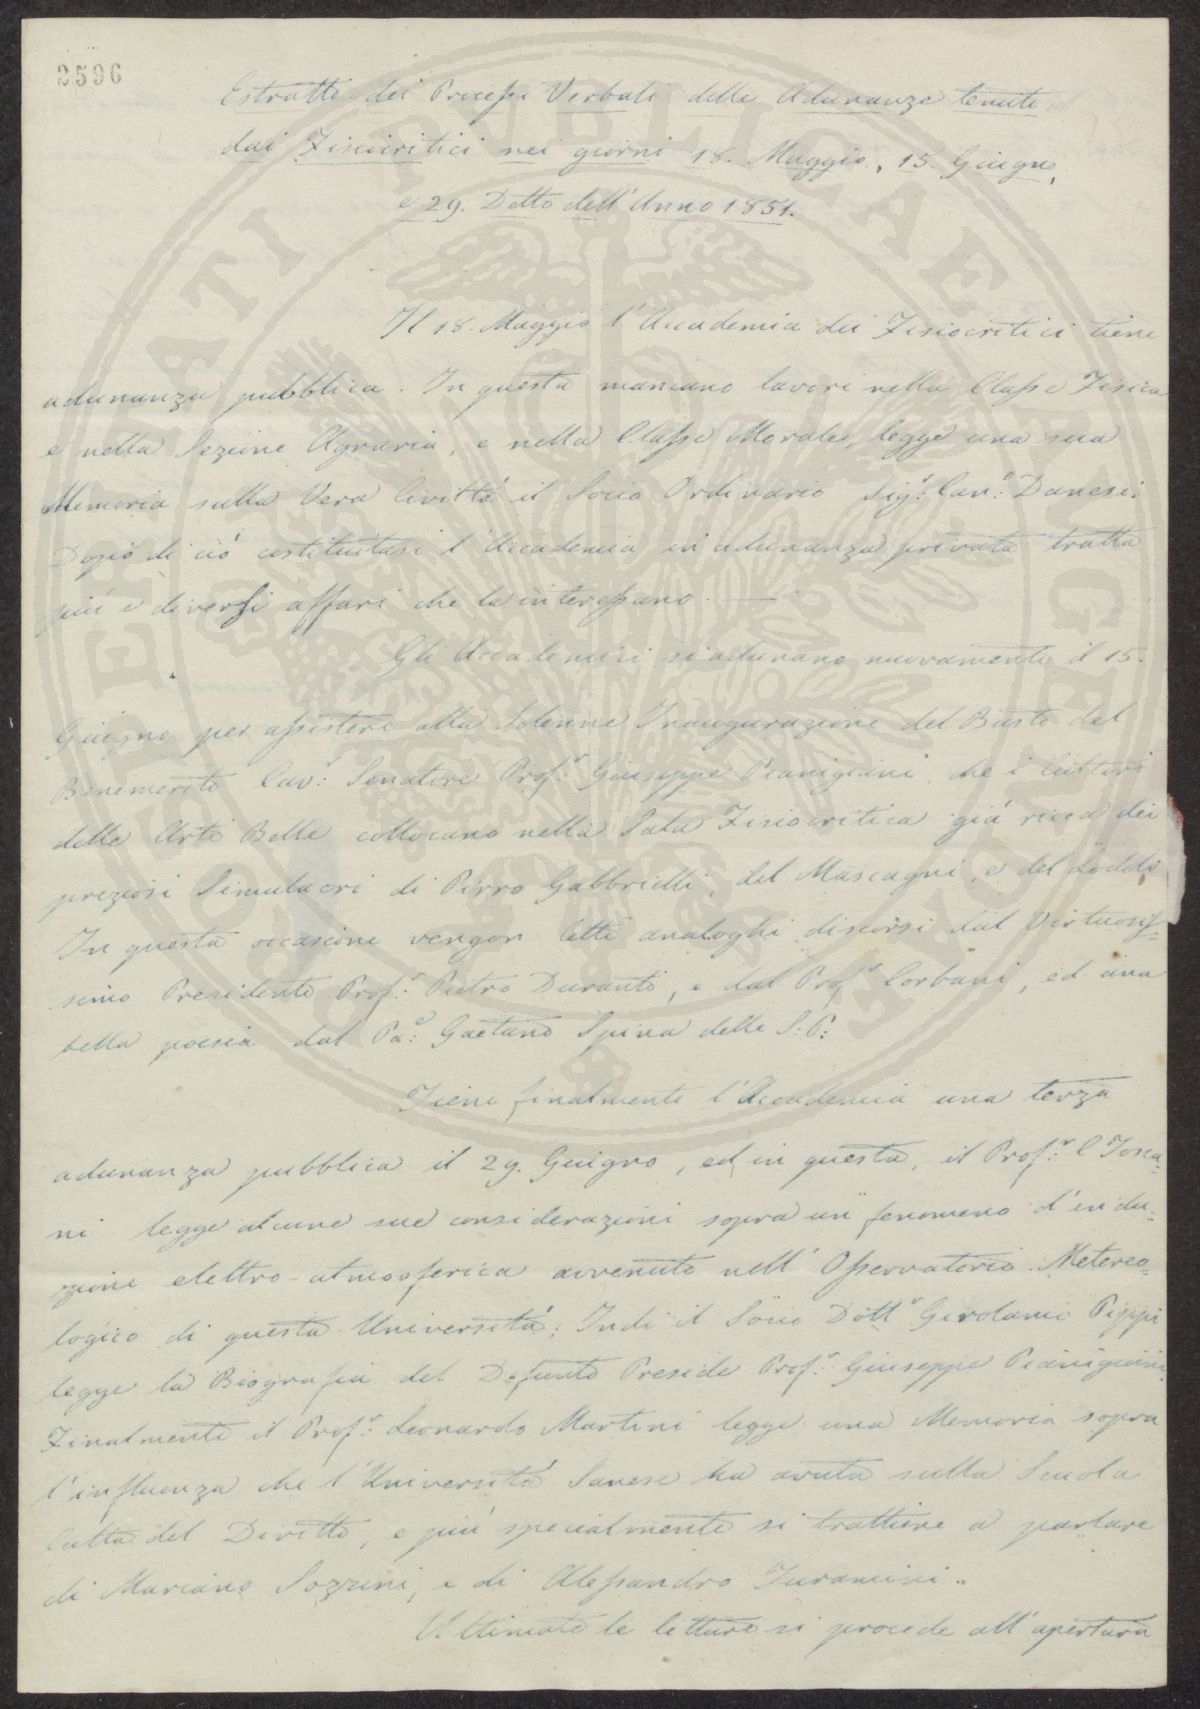 2596
Estratto dei Processi Verbali delle Adunanze tenute
dai Fisiocritici nei giorni 18. Maggio, 15. Giugno,
e 29. Detto dell'Anno 1851.
Il 18. Maggio l'Accademia dei Fisiocritici tiene
adunanza pubblica. In questa mancano lavori nella Classe Fisica
e nella Sezione Agraria, e nella Classe Morale, legge una sua
Memoria sulla Vera Civiltá il Socio Ordinario Sigr. Cavo. Danesi.
Dopo di ció costituitasi l'Accademia in adunanza privata tratta
piú e diversi affari che la interessano. —
Gli Accademici si adunano nuovamente il 15.
Giugno per assistere alla Solenne Inaugurazione del Busto del
Benemerito Cavr. Senatore Profr. Giuseppe Pianigiani, che i Cultori
delle Arti Belle collocano nella Sala Fisiocritica giá ricca dei
preziosi Simulacri di Pirro Gabbrielli, del Mascagni, e del Loddi
In questa occasione vengon letti analoghi discorsi dal Virtuosis-
simo Presidente Profr. Pietro Duranti, e dal Profr. Corbani, ed una
bella poesia dal Pae. Gaetano Spina delle S: P:
Tiene finalmente l'Accademia una terza
adunanza pubblica il 29. Giugno, ed in questa, il Profr. C Tosca-
ni legge alcune sue considerazioni sopra un fenomeno d'indu-
zione elettro-atmosferica avvenuto nell'Osservatorio Metereo-
logico di questa Universitá; Indi il Socio Dottr Girolamo Pippi
legge la Biografia del Defunto Preside Profr. Giuseppe Pianigiani.
Finalmente il Profr. Leonardo Martini legge una Memoria sopra
l'influenza che l'Universitá Sanese ha avuta sulla Scuola
Culta del Diritto, e piú specialmente si trattiene a parlare
di Mariano Sozzini, e di Alessandro Turamini.
Ultimate le letture si procede all'apertura